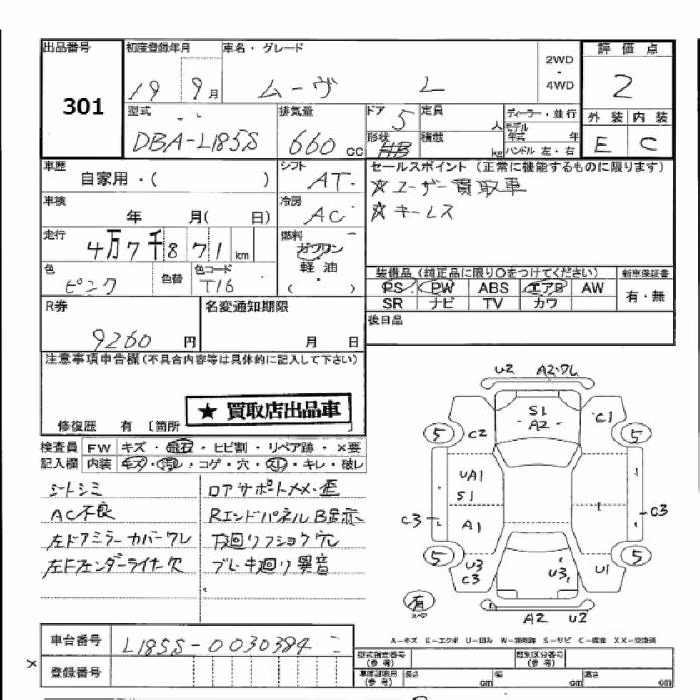 出品番号 初度登録年月 車名・グレード 評価点
301 19 9月 ムーヴ L 2WD ・ 4WD 2
型式 排気量 ドア 5 定員 人 ディーラー・並行 外装 内装
DBA-L185S 660cc 形状 HB 積載 kg モデル年式 年 ハンドル 左・右 E C
車歴 自家用・( ) シフト AT セールスポイント (正常に機能するものに限ります)
☆ユーザー買取車
車検 年 月( 日) 冷房 AC ☆キーレス
走行 4万7千871km 燃料 ガソリン 軽油 ( ・ )
色 ピンク 色替 色コード T16 装備品(純正品に限り○をつけてください) 新車保証書
PS PW ABS エアB AW 有・無
SR ナビ TV カワ
R券 9260円 名変通知期限 月 日 後日品
注意事項申告欄(不具合内容等は具体的に記入して下さい)
★ 買取店出品車
修復歴 有 [箇所 ]
検査員 FW キズ・飛石・ヒビ割・リペア跡・×要
記入欄 内装 キズ・汚レ・コゲ・穴・スレ・キレ・破レ
シートシミ ロアサポートメメ・歪
AC不良 RエンドパネルB
左ドアミラーカバーワレ 下廻り
左Fフェンダーライナー欠 ブレーキ廻り異音
U2 A2・ワレ
S1 A2
5 C2 C1 5
UA1 S1
C3 A1 C3
5 U3 C3 U3 U1 5
有
A2 U2
A-キズ E-エクボ U-凹み W-補修跡 S-サビ C-腐食 XX-交換済
車台番号 L185S-0030384 型式指定番号(参考) 類別区分番号(参考)
× 登録番号 長さ cm 幅 cm 高さ cm